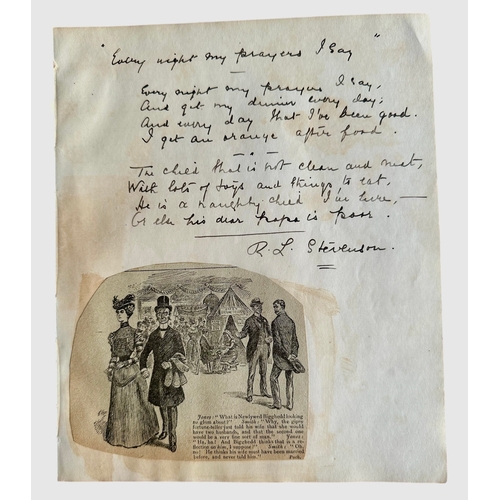 "Every night my prayers I say"
Every night my prayers I say,
And get my dinner every day;
And every day that I've been good.
I get an orange after food.
The child that is not clean and neat,
With lots of toys and things to eat,
He is a naughty child I'm sure,—
Or else his dear papa is poor.
R. L. Stevenson.
JONES: "What is Newlywed Bigghedd looking
so glum about?" SMITH: "Why, the gipsy
fortune-teller just told his wife that she would
have two husbands, and that the second one
would be a very fine sort of man." JONES:
"Ha, ha! And Bigghedd thinks that is a re-
flection on him, I suppose?" SMITH: "Oh,
no! He thinks his wife must have been married
before, and never told him." Puck.